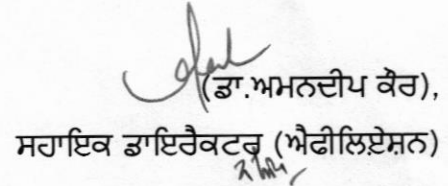 (ਡਾ.ਅਮਨਦੀਪ ਕੌਰ),
ਸਹਾਇਕ ਡਾਇਰੈਕਟਰ (ਐਫੀਲਿਏਸ਼ਨ)